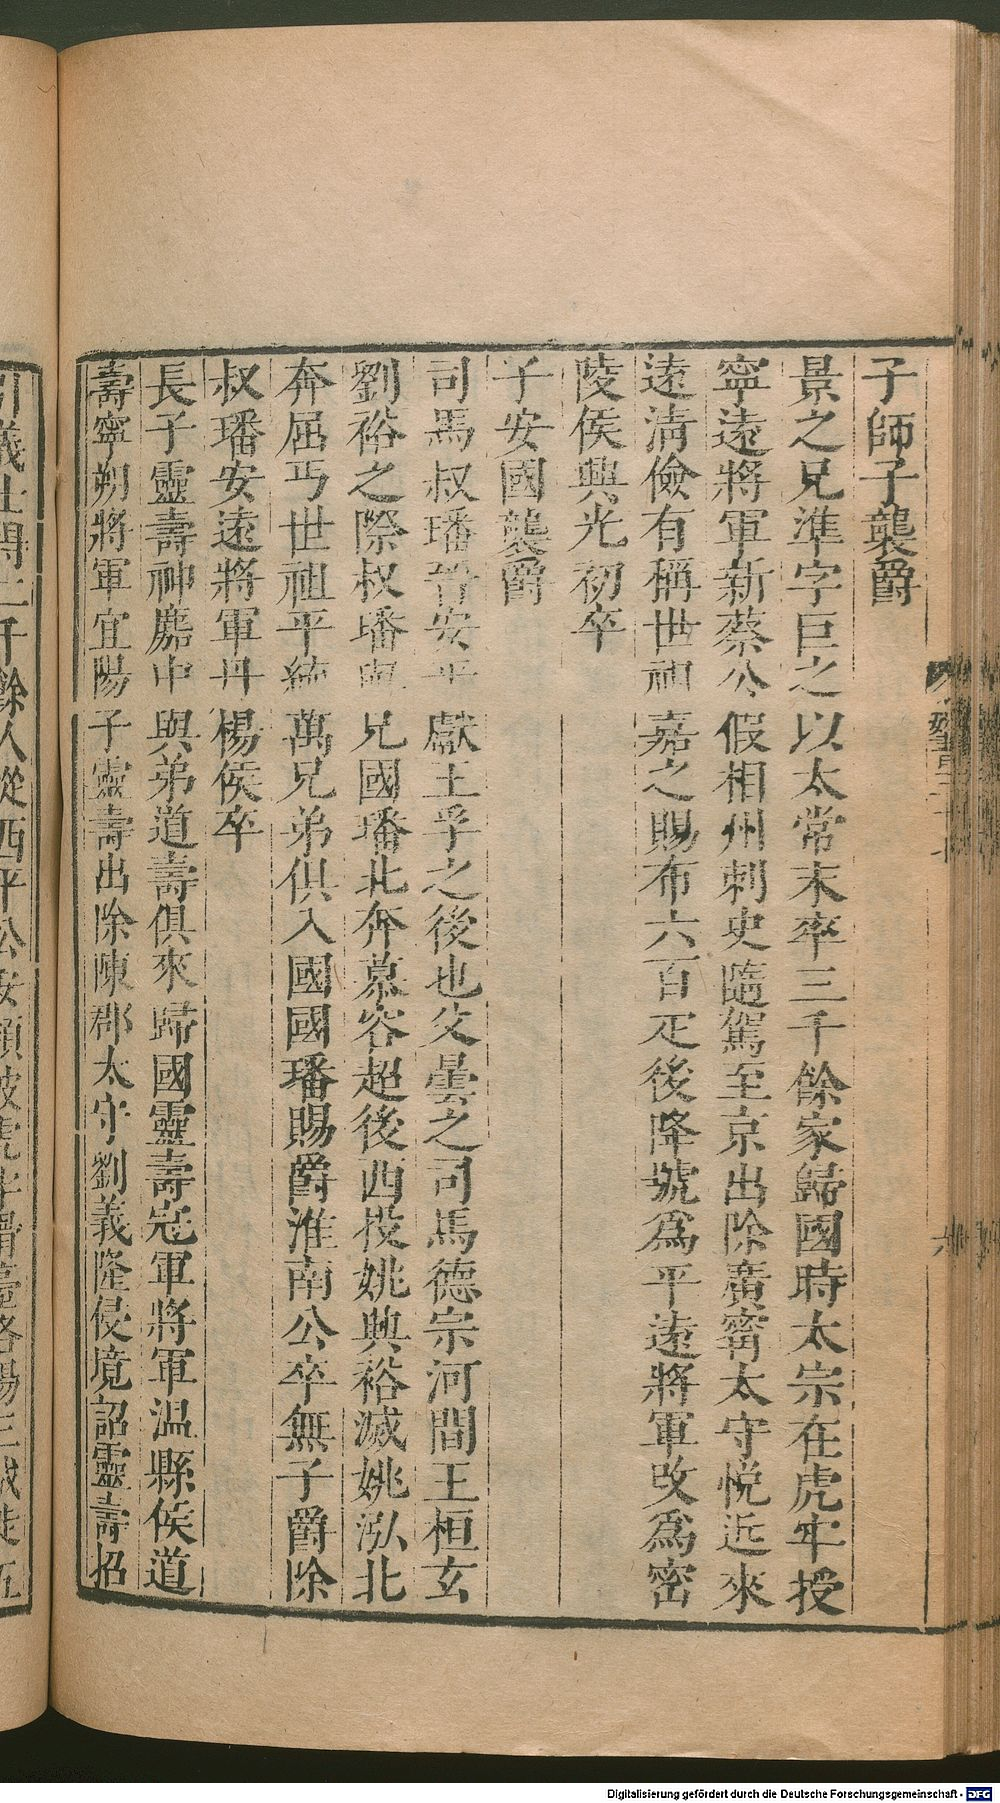 子師子襲爵
景之兄準字巨之以太常末卒三千餘家歸國時太宗在虎牢授
寧遠將軍新蔡公假相州刺史隨駕至京出除廣甯太守悅近來
遠清儉有稱世祖嘉之賜布六百疋後降號爲平遠將軍改爲密
陵侯興光初卒
子安國襲爵
司馬叔璠晉安平獻王孚之後也父曇之司馬德宗河間王桓玄
劉裕之際叔璠與兄國璠北奔慕容超後西投姚興裕滅姚泓北
奔屈丐世祖平統萬兄弟俱入國國璠賜爵淮南公卒無子爵除
叔璠安遠將軍丹楊侯卒
長子靈壽神䴥中與弟道壽俱來歸國靈壽冠軍將軍温縣侯道
壽寧朔將軍宜陽子靈壽出除陳郡太守劉義隆侵境詔靈壽招
引義士得二千餘人從西平公安頡破虎牢滑臺洛陽三城徙五
Digitalisierung gefördert durch die Deutsche Forschungsgemeinschaft - DFG